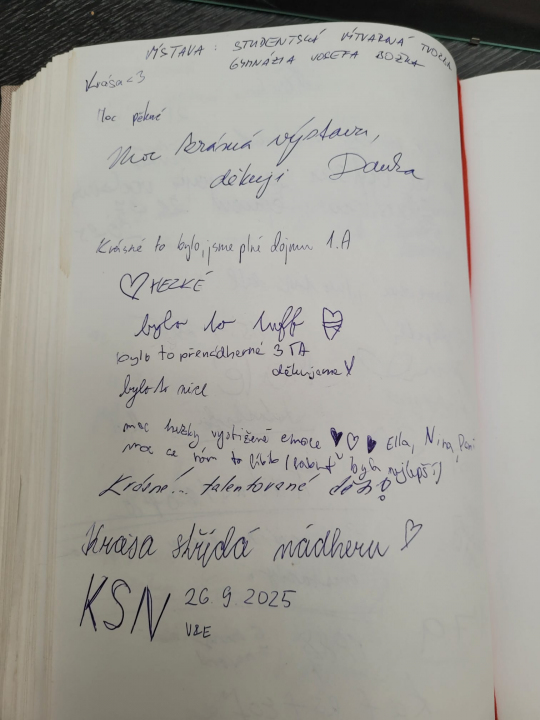 VÝSTAVA: STUDENTSKÁ VÝTVARNÁ TVORBA
GYMNÁZIA JOSEFA BOŽKA
Krása <3
Moc pěkné
Moc krásná výstava,
děkuji Danka
Krásné to bylo, jsme plné dojmů 1.A
♡ HEZKÉ
bylo to tuff
bylo to přenádherné 3TA
děkujeme
bylo to nice
moc hezky vystižené emoce ♥♡♥ Ella, Nina,
moc se nám to líbilo ( byla nejlepší)
Krásné... talentované děti!
Krása střídá nádheru ♡
KSN 26.9.2025
V&E